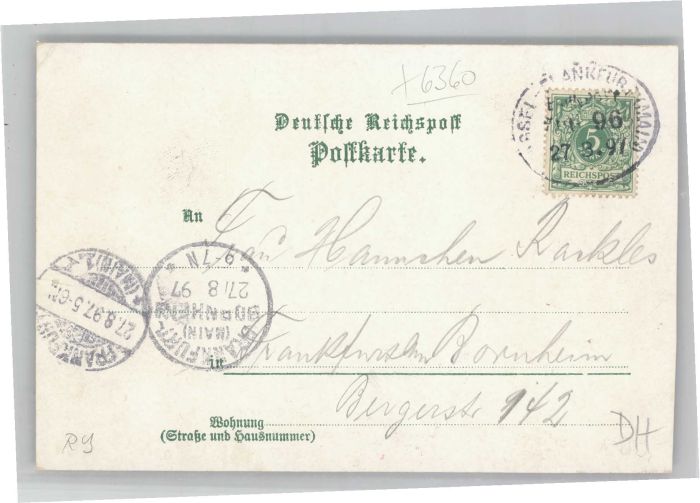 +6360
Deutsche Reichspost
Postkarte.
CASSEL - FRANKFURT (MAIN)
96
27 8.97
5
REICHSPOST
An
Frau Hannchen
FRANKFURT (MAIN)
27.8.97.5-6N
FRANKFURT
(MAIN)
BORNHEIM
27/8 97
6-7N
in Frankfurt Bornheim
Wohnung
(Straße und Hausnummer)
Bergerstr 142
R9
DH